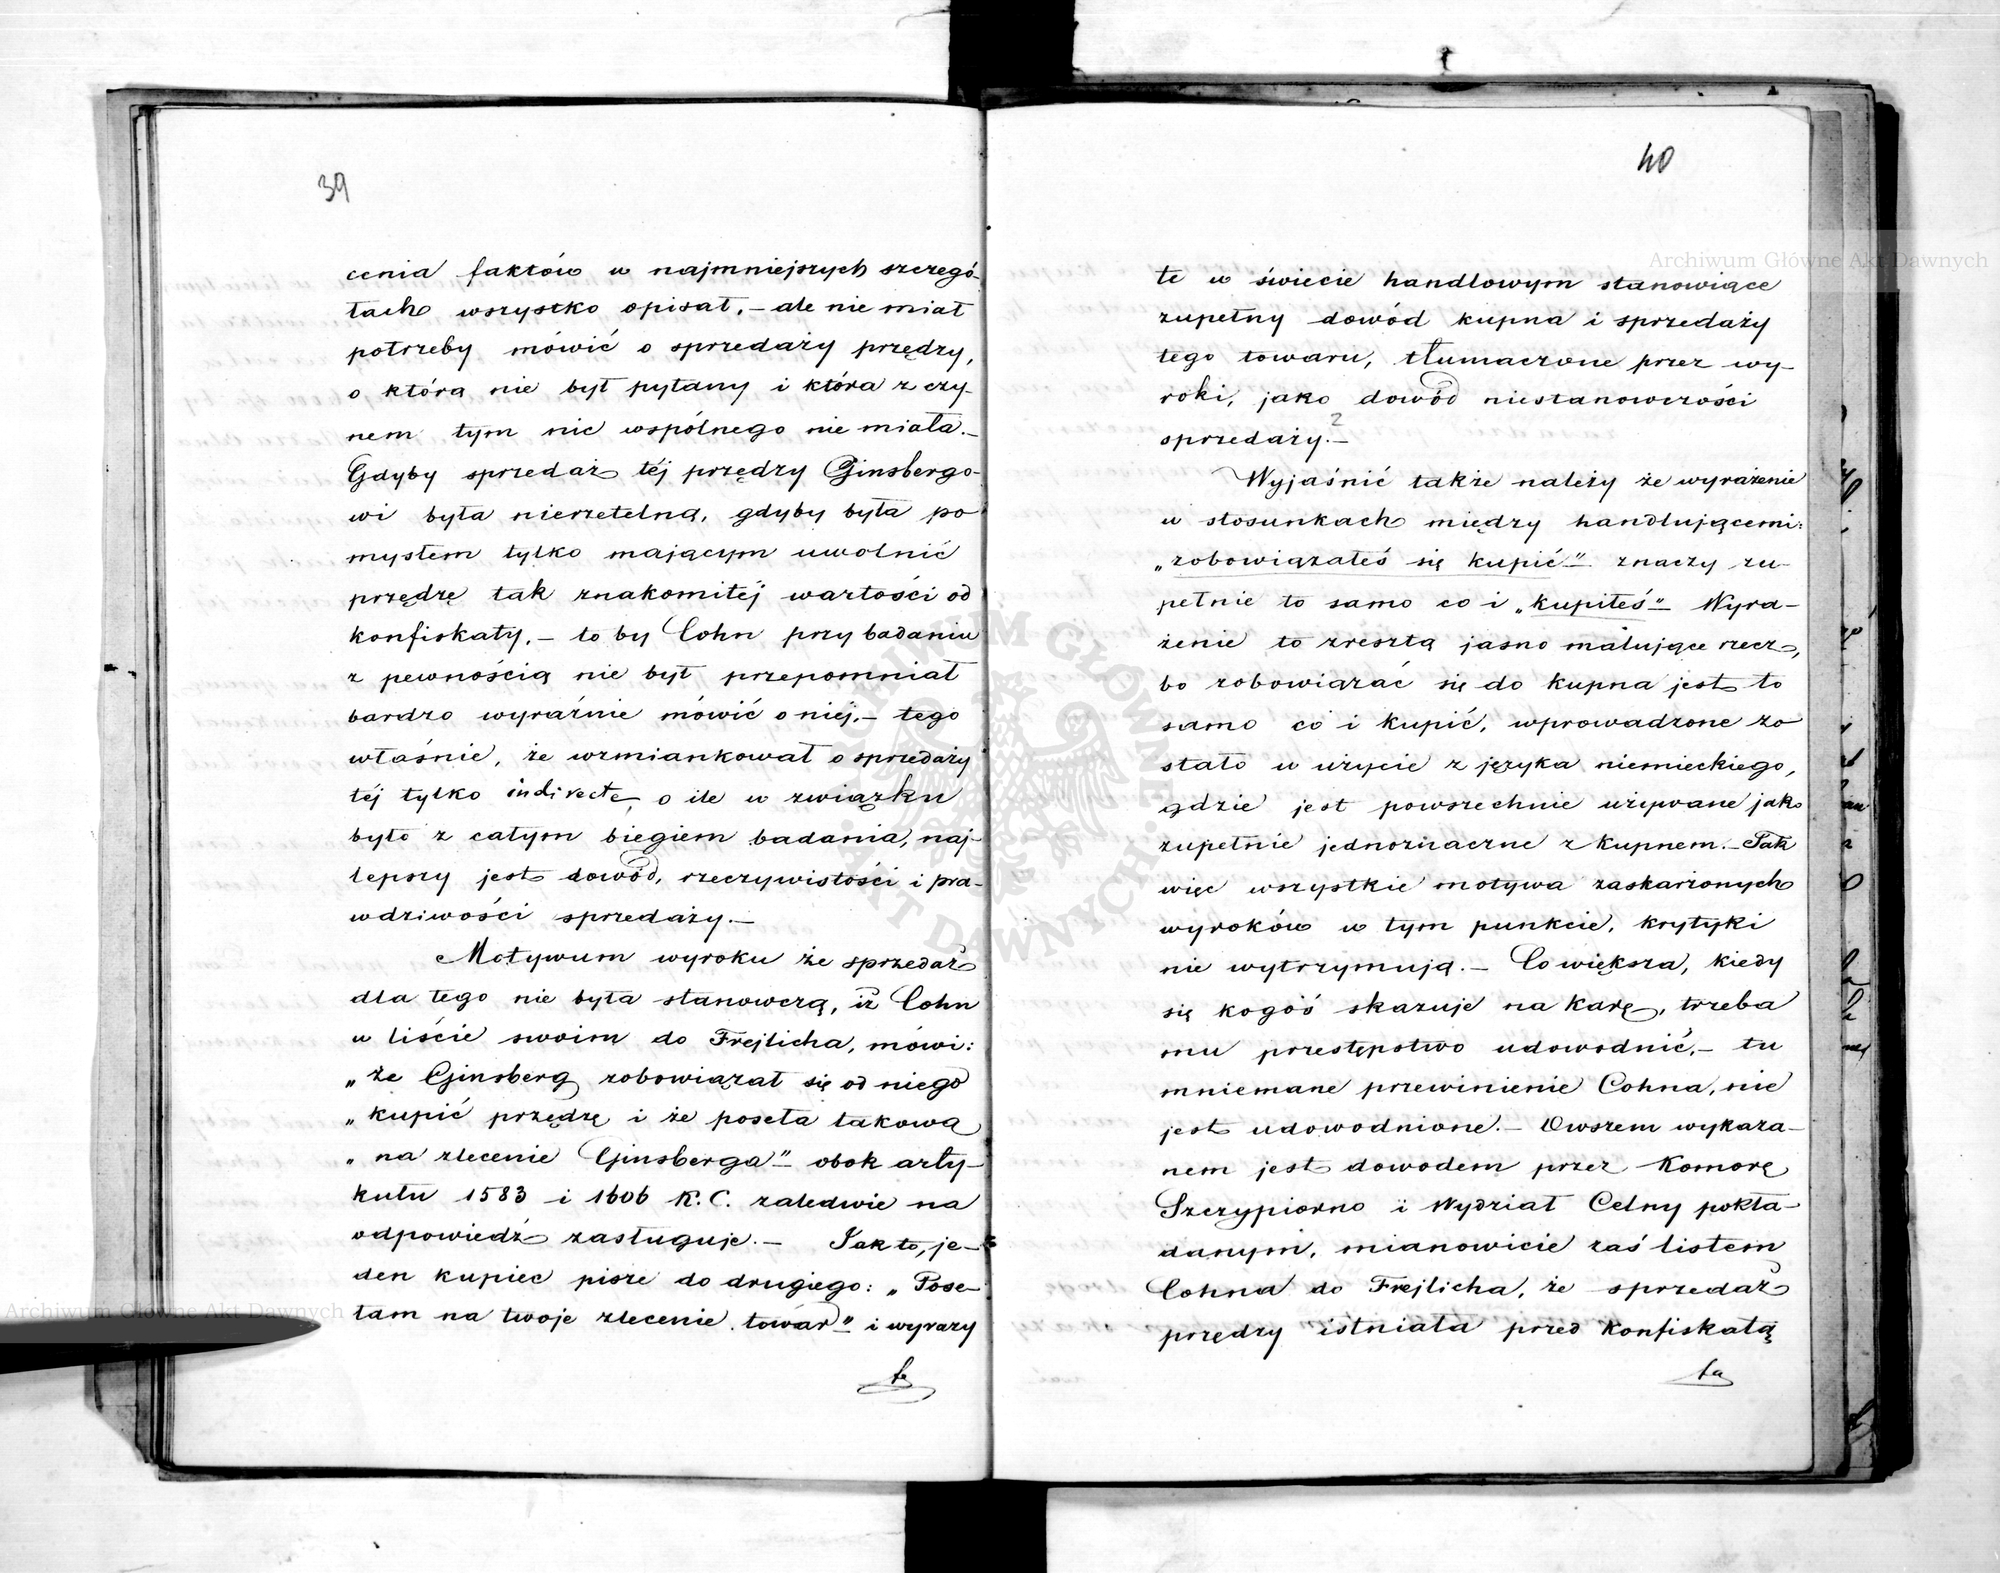 39
cenia faktów w najmniejszych szczegó-
łach wszystko opisał, – ale nie miał
potrzeby mówić o sprzedaży przędzy,
o którą nie był pytany i która z czy-
nem tym nic wspólnego nie miała. –
Gdyby sprzedaż téj przędzy Ginsbergo-
wi była nierzetelną, gdyby była po
mysłem tylko mającym uwolnić
przędzę tak znakomitéj wartości od
konfiskaty, – to by Cohn przy badaniu
z pewnością nie był przepomniał
bardzo wyraźnie mówić o niéj. – tego
właśnie, że wzmiankował o sprzedaży
téj tylko indirecte, o ile w związku
było z całym biegiem badania, naj-
lepszy jest dowód, rzeczywistości i pra-
wdziwości sprzedaży. –
Motywum wyroku że sprzedaż
dla tego nie była stanowczą, iż Cohn
w liście swoim do Frejlicha, mówi:
„że Ginsberg zobowiązał się od niego
„kupić przędzę i że poseła takową
„na zlecenie Ginsberga" – obok arty-
kułu 1583 i 1606 K. C. zaledwie na
odpowiedź zasługuje. – Jak to, je-
den kupiec pisze do drugiego: „Pose-
łam na twoje zlecenie towar" i wyrazy
te
40
te w świecie handlowym stanowiące
zupełny dowód kupna i sprzedaży
tego towaru, tłumaczone przez wy-
roki, jako dowód niestanowczości
sprzedaży.? –
Wyjaśnić także należy że wyrażenie
w stosunkach między handlującemi:
„zobowiązałeś się kupić" – znaczy zu-
pełnie to samo co i „kupiłeś" – Wyra-
żenie to zresztą jasno malujące rzecz,
bo zobowiązać się do kupna jest to
samo co i kupić, wprowadzone zo
stało w użycie z języka niemieckiego,
gdzie jest powszechnie używane jako
zupełnie jednoznaczne z kupnem. – Tak
więc wszystkie motywa zaskarżonych
wyroków w tym punkcie, krytyki
nie wytrzymują. – Co większa, kiedy
się kogoś skazuje na karę, trzeba
mu przestępstwo udowodnić, – tu
mniemane przewinienie Cohna, nie
jest udowodnione. – Owszem wykaza-
nem jest dowodem przez Komorę
Szczypiorno i Wydział Celny pokła-
danym, mianowicie zaś listem
Cohna do Frejlicha, że sprzedaż
przędzy istniała przed konfiskatą
ta
Archiwum Główne Akt Dawnych
Archiwum Główne Akt Dawnych
ARCHIWUM GŁÓWNE AKT DAWNYCH